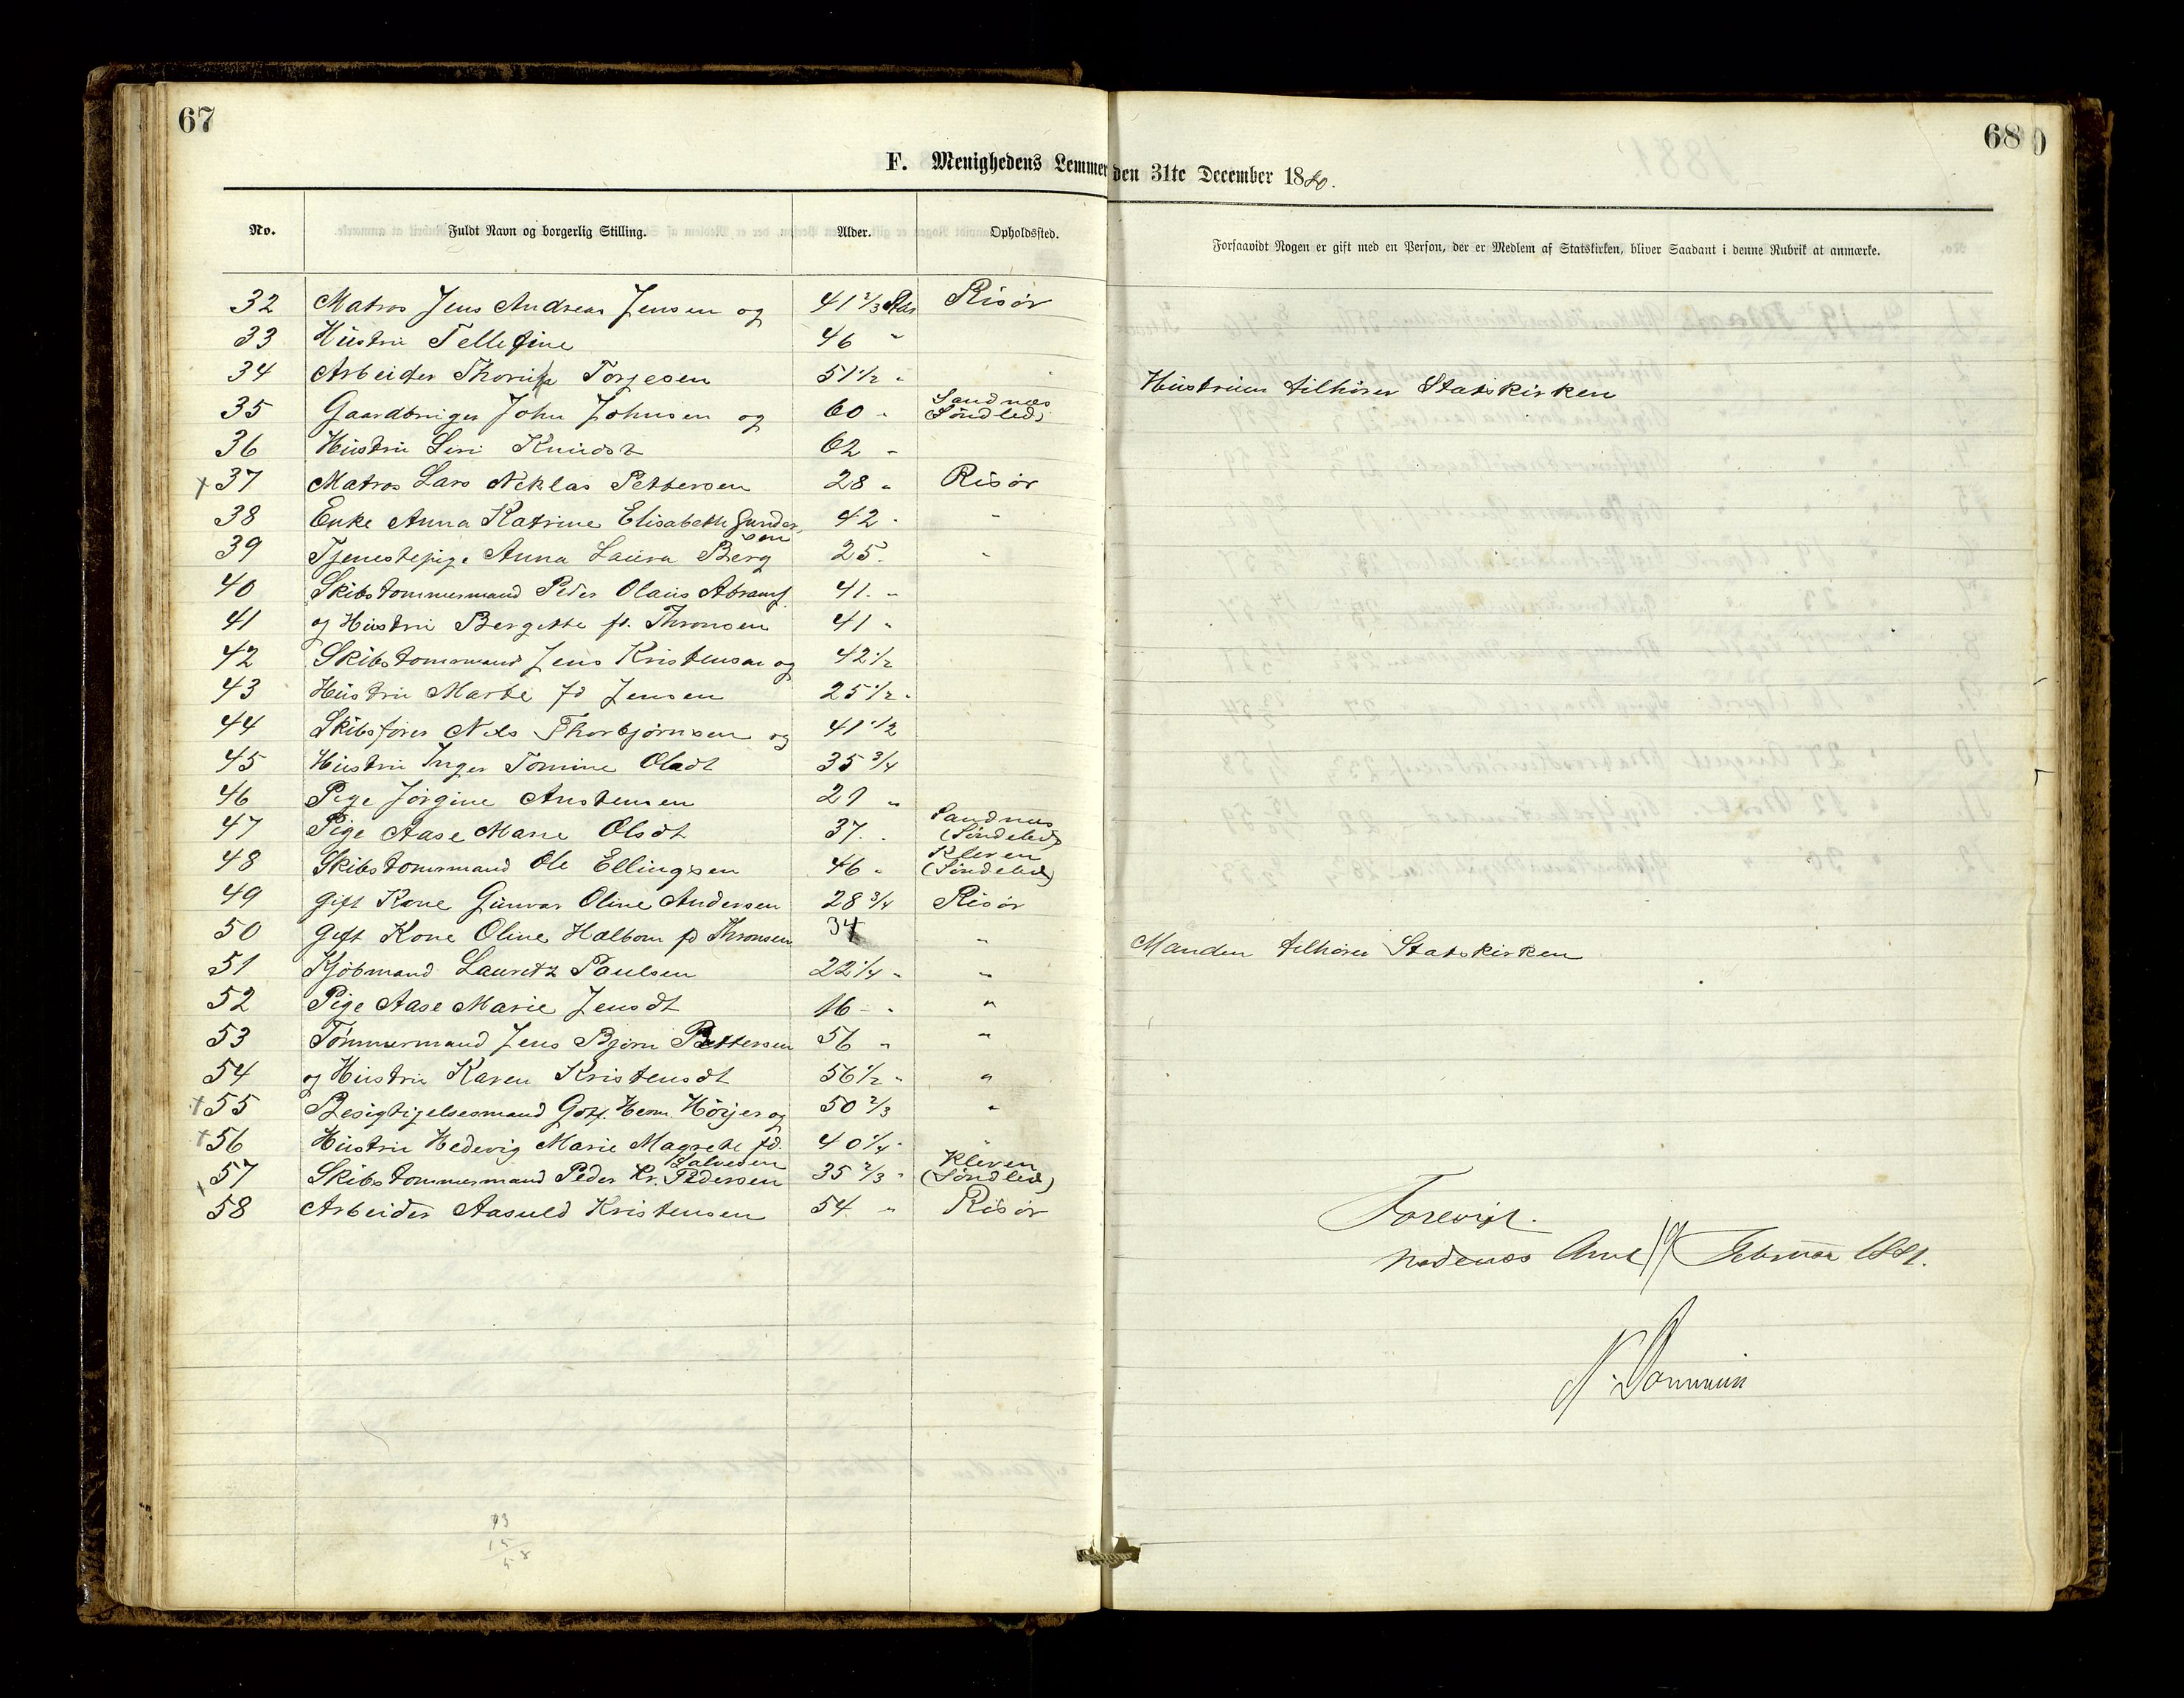 67
68
F. Menighedens Lemmer den 31te December 1880.
No. Fuldt Navn og borgerlig Stilling. Alder. Opholdssted. Forsaavidt Nogen er gift med en Person, der er Medlem af Statskirken, bliver Saadant i denne Rubrik at anmærke.
32 Matros Jens Andreas Jensen og 41 2/3 Aar Risør
33 Hustru Tellefine 46 "
34 Arbeider Torjesen 51 1/2 " " Hustruen tilhører Statskirken
35 Gaardbruger John Johnsen og 60 " Sandnæs (Søndeled)
36 Hustru Siri Knudsdt 62 "
x 37 Matros Lars Niklas Pettersen 28 " Risør
38 Enke Anna Katrine Elisabeth Gundersen 42 " "
39 Tjenestepige Anna Laura Berg 25 "
40 Skibstømmermand Peder Olaus Abrams. 41 "
41 og Hustru Bergitte fd. Thronsen 41 "
42 Skibstømmand Jens Kristensen og 42 1/2
43 Hustru Marte fd Jensen 25 1/2 "
44 Skibsfører Nils Thorbjørnsen og 41 1/2
45 Hustru Inger Tomine Olsdt 35 3/4
46 Pige Jørgine Anstensen 29 "
47 Pige Aase Marie Olsdt 37 " Sandnæs (Søndeled)
48 Skibstømmand Ole Ellingsen 46 " Kleven (Søndeled)
49 gift Kone Gunvor Oline Andersen 28 3/4 Risør
50 gift Kone Oline Halbom fd Thronsen 34 " Manden tilhører Statskirken
51 Kjøbmand Lauritz Paulsen 22 1/4 " "
52 Pige Aase Marie Jensdt 16 " "
53 Tømmermand Jens Bjørn Pettersen 56 " "
54 og Hustru Karen Kristensdt 56 1/2 " "
x 55 Besigtigelsesmand Gotf. Herm. Höyer og 50 2/3 "
x 56 Hustru Hedevig Marie Magrete fd. Salvesen 40 1/4 "
x 57 Skibstømmermand Peder Kr. Pedersen 35 2/3 " Kleven (Søndeled)
58 Arbeider Aasuld Kristensen 54 " Risør
Forevist.
Nedenæs Amt Februar 1881.